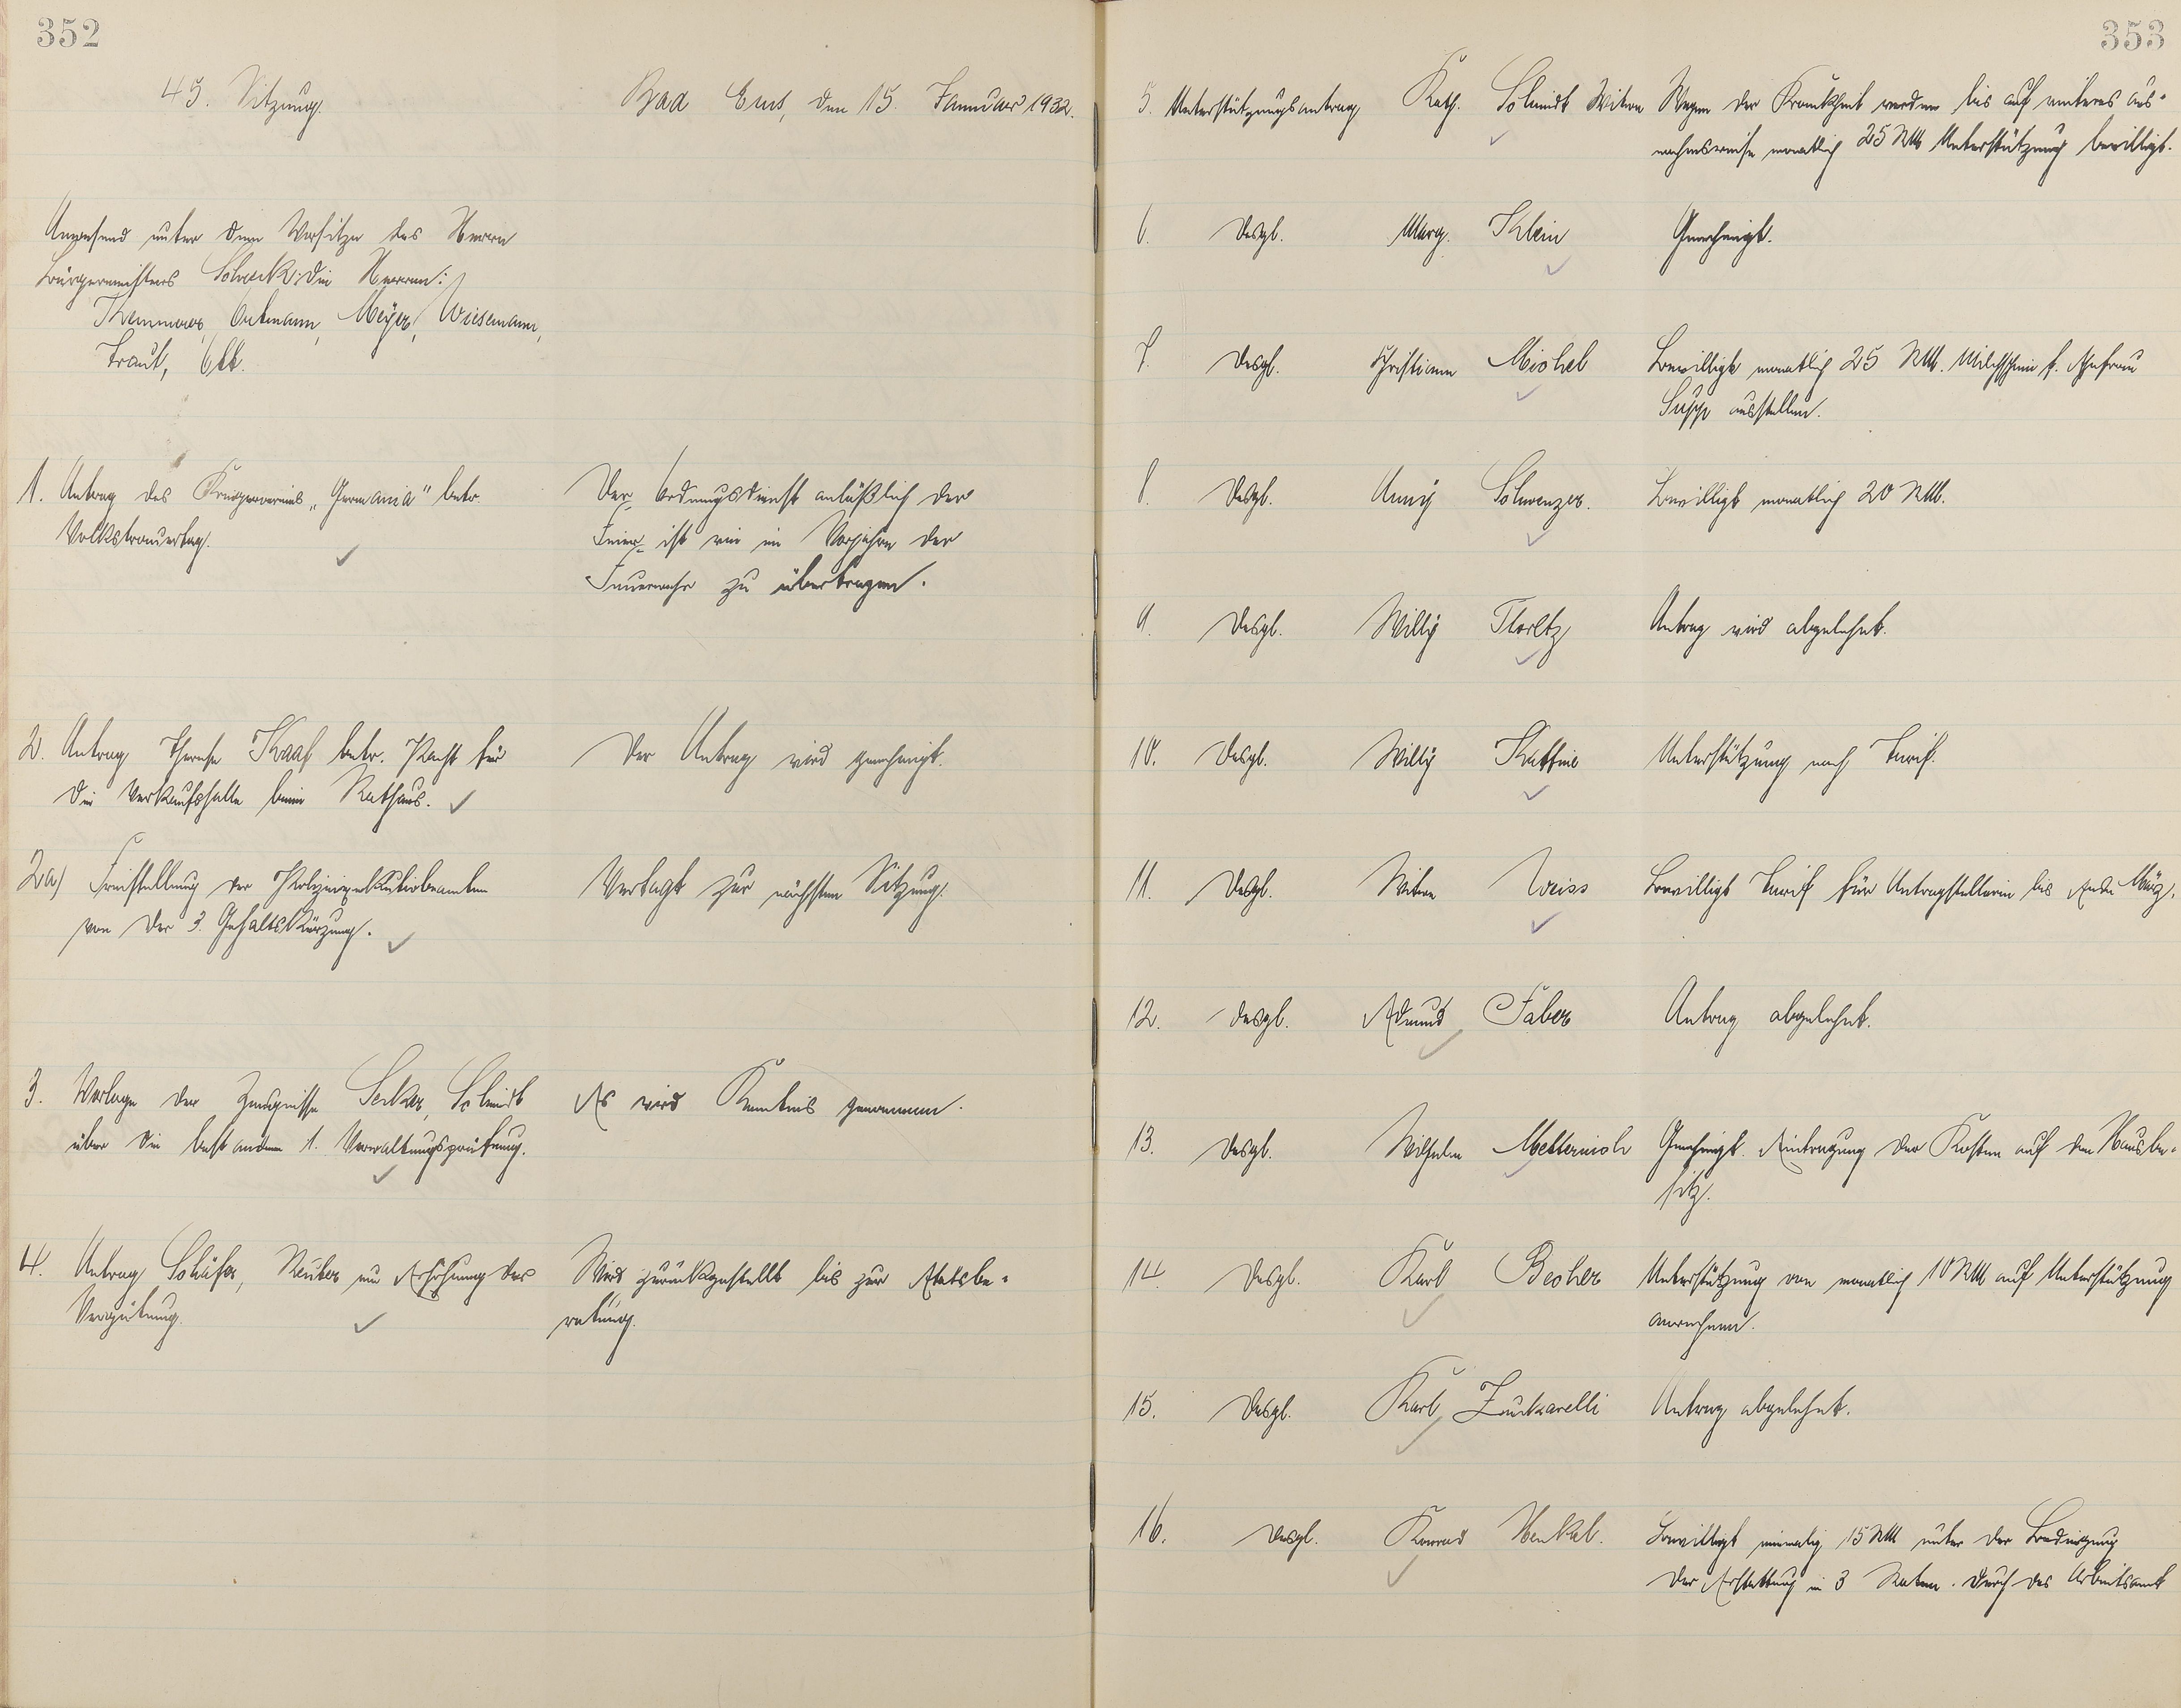 352
45. Sitzung.
Bad Ems, den 15. Januar 1932.
Anwesend unter dem Vorsitze des Herrn
Bürgermeisters Schreck die Herren:
Themmer, Ortmann, Meyer, Wiesemann,
Traut, Ott.
1. Antrag des Kriegervereins „Germania" betr.
Volkstrauertag.
Der Ordnungsdienst anläßlich der
Feier ist wie im Vorjahre der
Feuerwehr zu übertragen.
2. Antrag Therese Kraaf betr. Pacht für
die Verkaufshalle beim Rathaus.
Der Antrag wird genehmigt.
2a) Freistellung der Polizeiexekutivbeamten
von der 3. Gehaltskürzung.
Vertagt zur nächsten Sitzung.
3. Vorlage der Zeugnisse Secker, Schmidt
über die bestandene 1. Verwaltungsprüfung.
Es wird Kenntnis genommen.
4. Antrag Schäfer, Reuter um Erhöhung der
Vergütung.
Wird zurückgestellt bis zur Etatsbe-
ratung.
353
5. Unterstützungsantrag Kath. Schmidt Witwe Wegen der Krankheit werden bis auf weiteres aus-
nahmsweise monatlich 25 RM Unterstützung bewilligt.
6. Desgl. Marg. Klein Genehmigt.
7. Desgl. Christian Michel Bewilligt monatlich 25 RM. Milchschein f. Ehefrau
Supp ausstellen.
8. Desgl. Anny Schwenzer. Bewilligt monatlich 20 RM.
9. Desgl. Willy Antrag wird abgelehnt.
10. Desgl. Willy Kuttine Unterstützung nach Tarif.
11. Desgl. Witwe Weiss Bewilligt Tarif für Antragstellerin bis Ende März.
12. desgl. Edmund Faber Antrag abgelehnt.
13. Desgl. Wilhelm Metternich Genehmigt. Eintragung der Kosten auf den Hausbe-
sitz.
14. Desgl. Karl Becher Unterstützung von monatlich 10 RM auf Unterstützung
anrechnen.
15. Desgl. Karl Zuckarelli Antrag abgelehnt.
16. Desgl. Konrad Henkel. Bewilligt einmalig 15 RM unter der Bedingung
der Erstattung in 3 Raten. Durch das Arbeitsamt